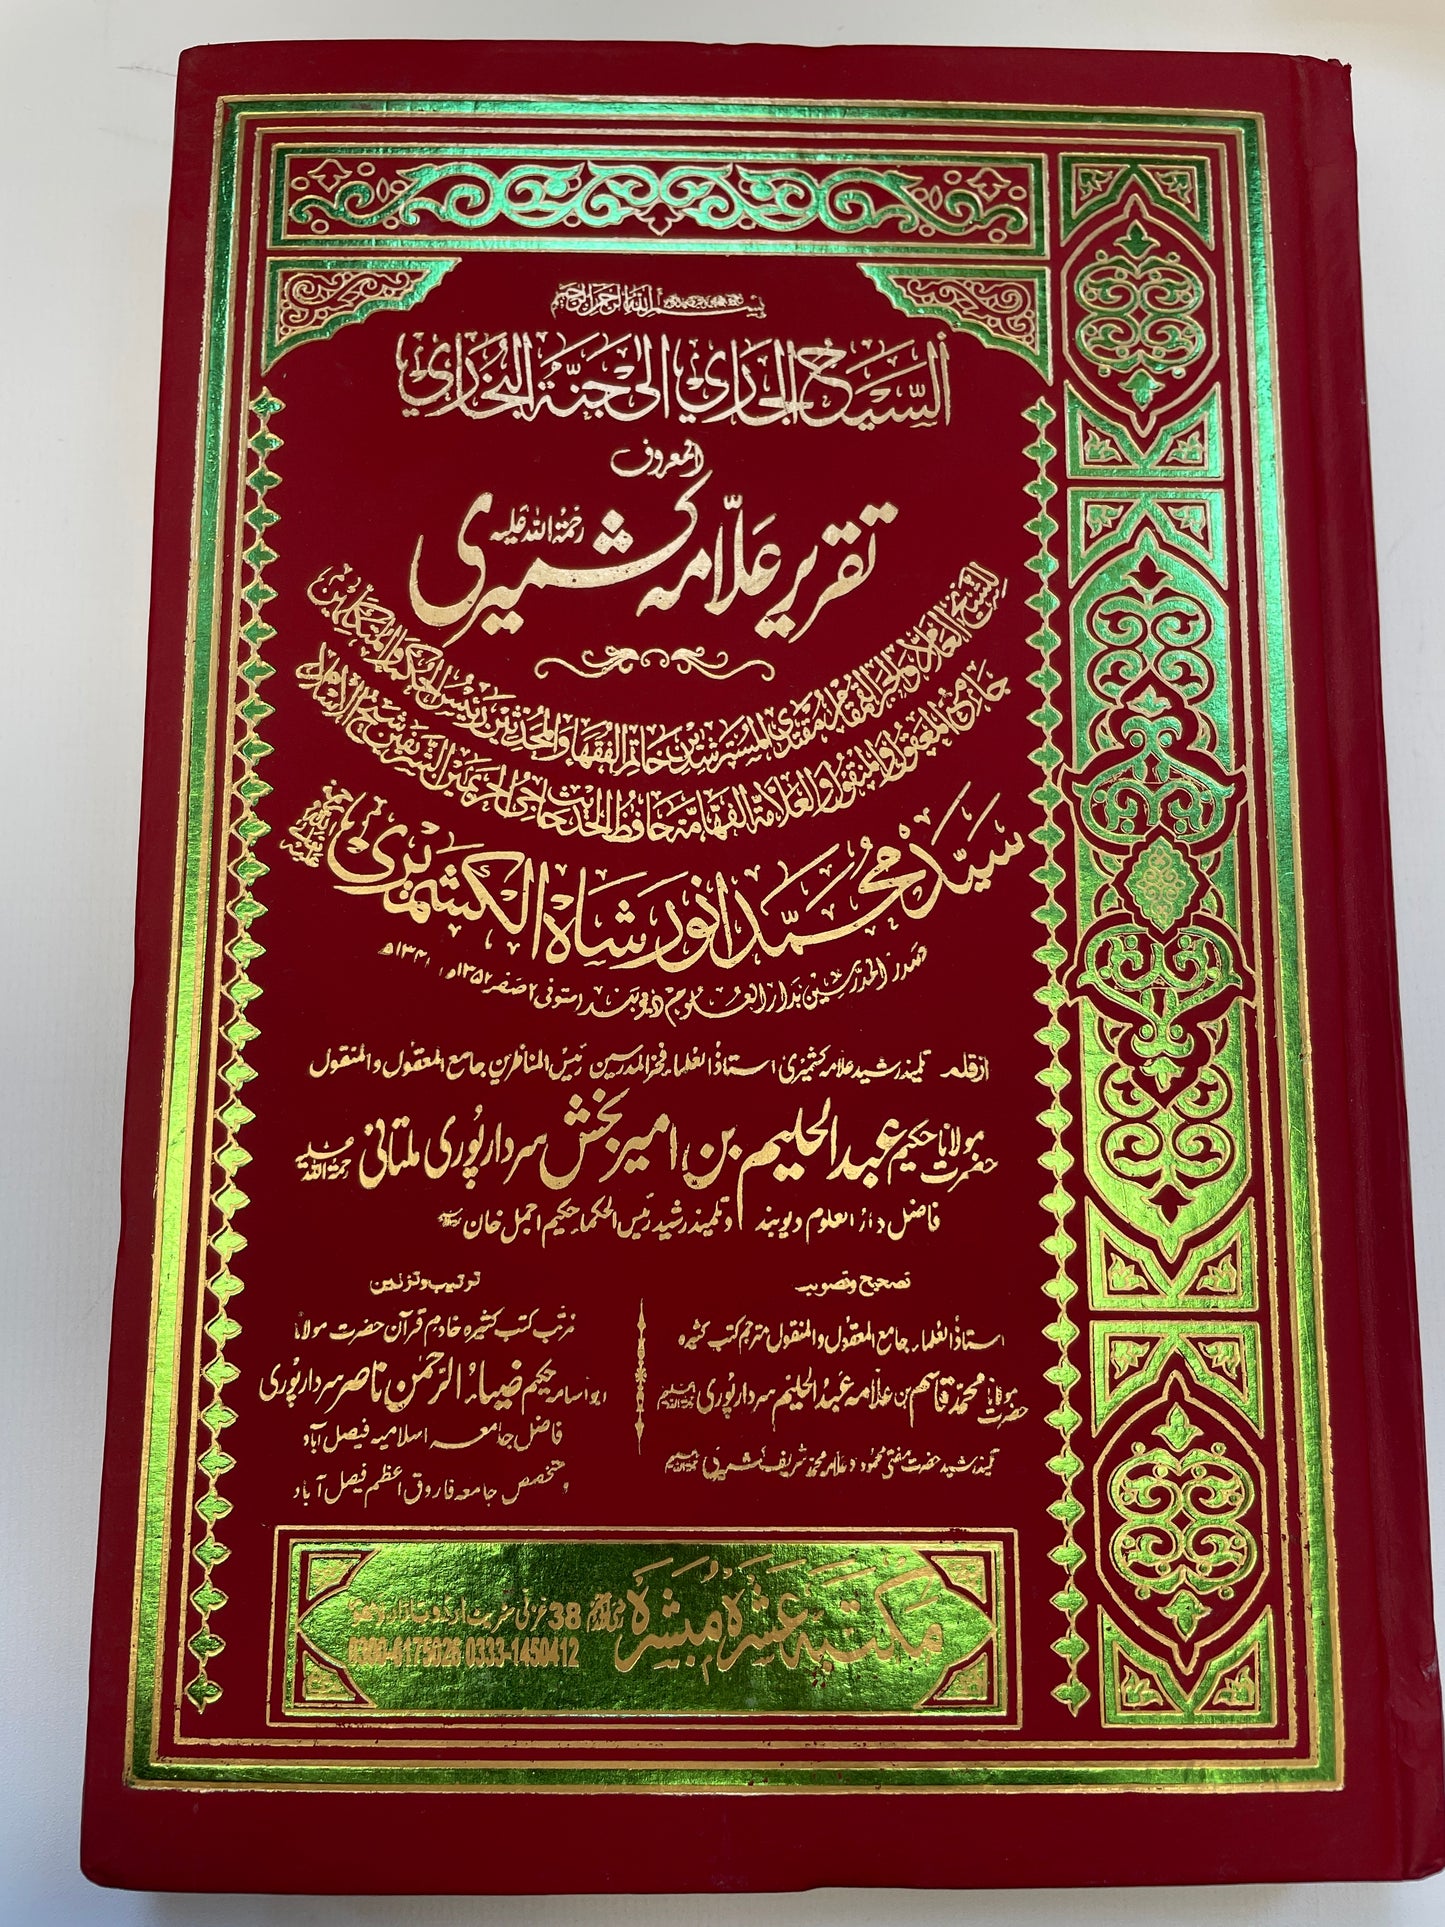 بسم اللہ الرحمن الرحیم
السَّيْح الجَارِي الىٰ جَنَّة البُخَارِي
المعروف
تقریر علّامہ کشمیری رحمۃ اللہ علیہ
للشيخ العلامة والحبر القمقام مقتدى المسترشدين خاتم الفقهاء والمحدثين رئيس الحكماء والمتكلمين
جامع المعقول والمنقول والعلامة الفهامة حافظ الحديث حاجی الحرمين الشريفين شيخ الاسلام
سيد محمد انور شاه الكشميرى رحمة الله تعالى عليه
صدر المدرسين بدار العلوم ديوبند المتوفى ٢ صفر ١٣٥٢ھ
از قلم تلمیذ رشید علامہ کشمیری استاذ العلماء فخر المدرسین رئیس المناظرین جامع المعقول والمنقول
حضرت مولانا حکیم عبدالحلیم بن امیر بخش سردارپُوری ملتانی رحمۃ اللہ علیہ
فاضل دار العلوم دیوبند و تلمیذ رشید رئیس الحکما حکیم اجمل خان
تصحیح وتصویب
استاذُ العلماء جامع المعقول والمنقول مترجم کتب کثیرہ
حضرت مولانا محمد قاسم بن علامہ عبدُ الحلیم سردارپُوری رحمۃ اللہ علیہ
تلمیذ رشید حضرت مفتی محمود و علامہ محمد شریف کشمیری رحمۃ اللہ علیہ
ترتیب وتزئین
مرتب کتب کثیرہ خادم قرآن حضرت مولانا
ابو اسامہ حکیم ضیاء الرحمٰن ناصر سردارپُوری
فاضل جامعہ اسلامیہ فیصل آباد
و متخصص جامعہ فاروق اعظم فیصل آباد
مکتبہ عشرہ مبشرہ
38 غزنی سٹریٹ اردو بازار لاہور
0300-4175026 0333-1450412